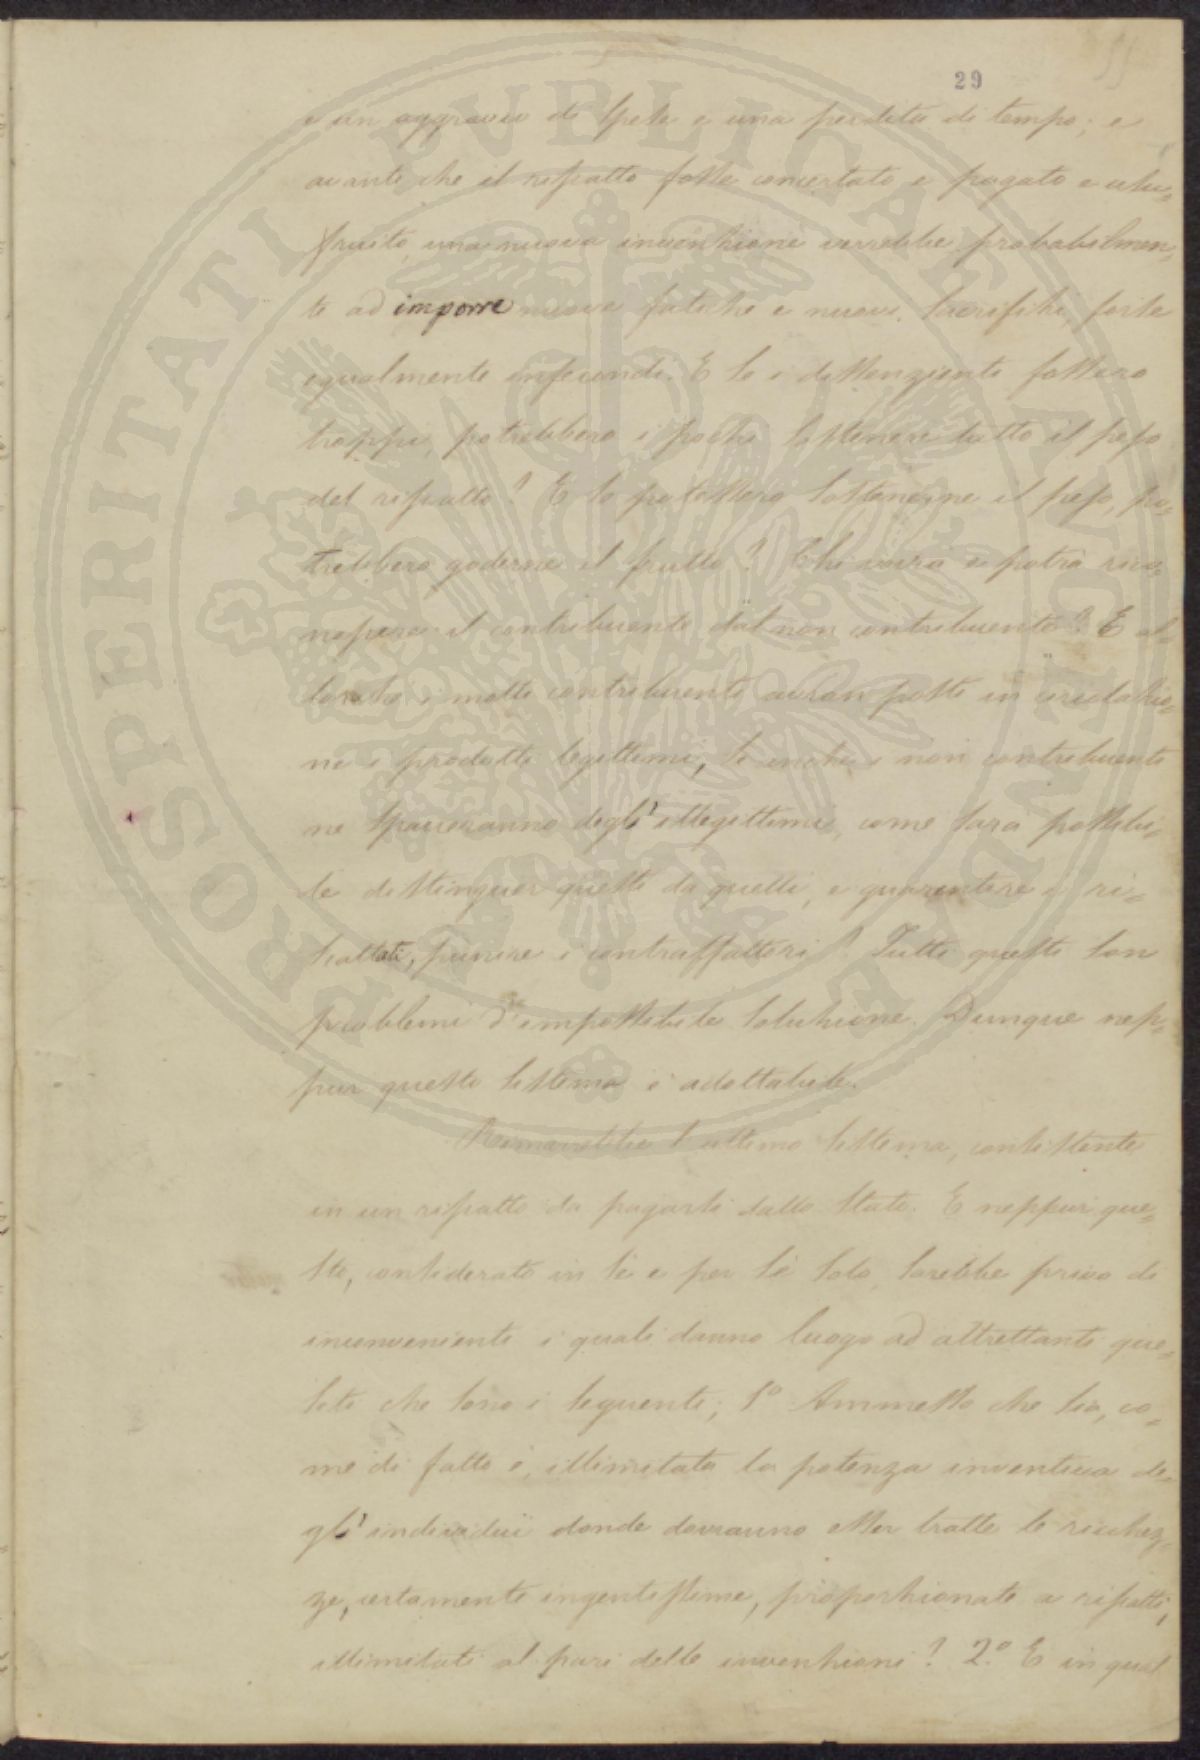 29
e un aggravio di spesa e una perdita di tempo; e
avanti che il rispatto fosse concertato e pagato e usu-
fruito, una nuova invenzione verrebbe probabilmen-
te ad imporre nuove fatiche e nuovi sacrifizi, forse
egualmente infecondi. E se i dissenzienti fossero
troppi, potrebbero i pochi sostenere tutto il peso
del rispatto? E se potessero sostenerne il peso, po-
trebbero goderne il frutto? Chi vorrà e potrà rico-
noscere il contribuente dal non contribuente? E al-
lorchè i molti contribuenti avran posti in circolazio-
ne i prodotti legittimi, se anche i non contribuenti
ne spacceranno degl'illegittimi, come sarà possibi-
le distinguer questi da quelli, e guarentire i
punire i contraffattori? Tutti questi son
problemi d'impossibile soluzione. Dunque nep-
pur questo sistema è adottabile.
Rimarrebbe l'ultimo sistema, consistente
in un rispatto da pagarsi dallo Stato. E neppur que-
sto, considerato in sè e per sè solo, sarebbe privo di
inconvenienti i quali danno luogo ad altrettanti que-
siti che sono i seguenti; 1º Ammesso che sia, co-
me di fatto è, illimitata la potenza inventiva de-
gl'individui donde dovranno esser tratte le ricchez-
ze, certamente ingentissime, proporzionate a rispatti,
illimitati al pari delle invenzioni? 2.º E in qual
PROSPERITATI PVBLICAE AVGENDAE